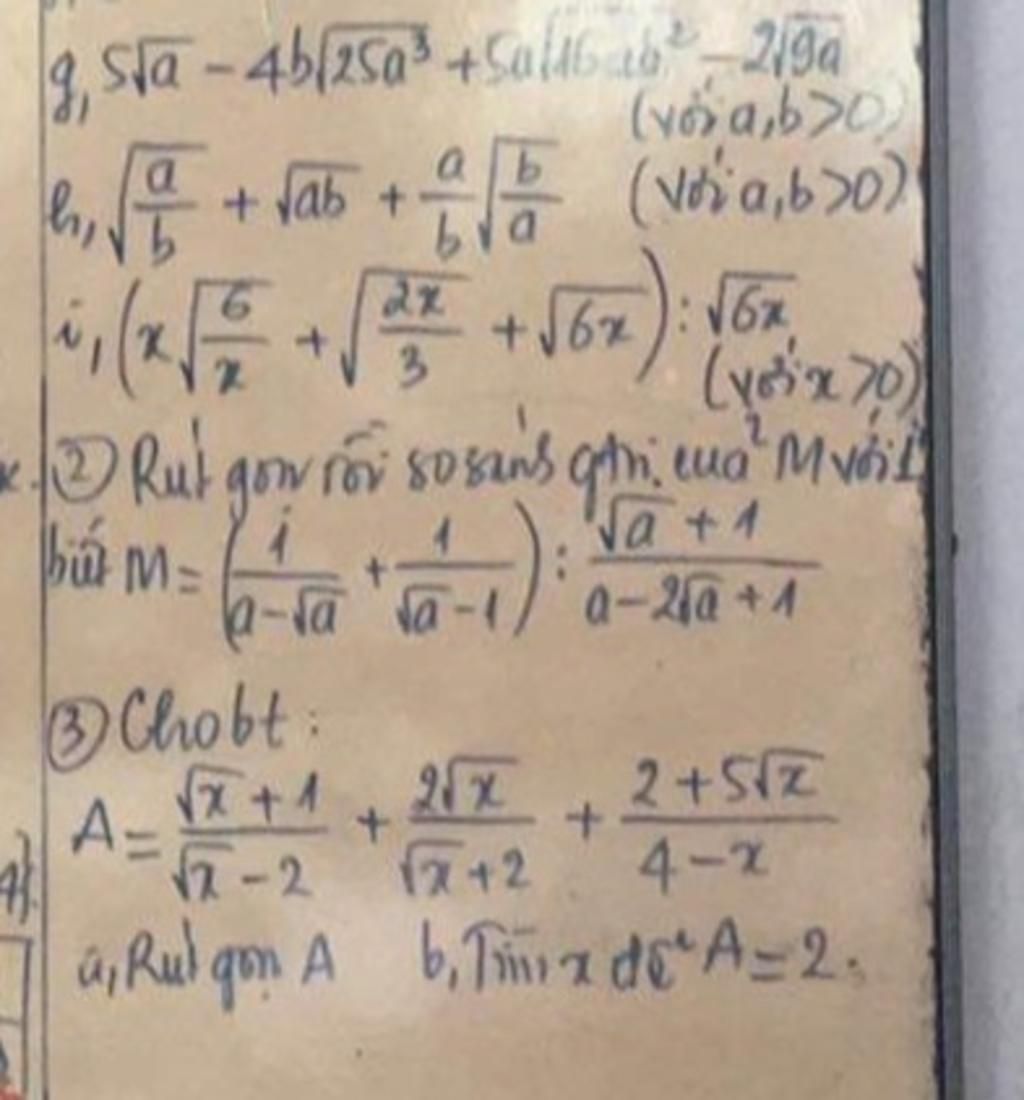 g, 5√a - 4b√25a³ + 5a√16ab² - 2√9a
(với a,b>0)
h, √(a/b) + √ab + a/b √(b/a) (với a,b>0)
i, (x√(6/x) + √(2x/3) + √6x) : √6x
(với x>0)
② Rút gọn rồi so sánh gtri. của M với 1
biết M = (1/(a-√a) + 1/(√a-1)) : (√a+1)/(a-2√a+1)
③ Cho bt:
A = (√x+1)/(√x-2) + 2√x/(√x+2) + (2+5√x)/(4-x)
a, Rút gọn A b, Tìm x để A=2.